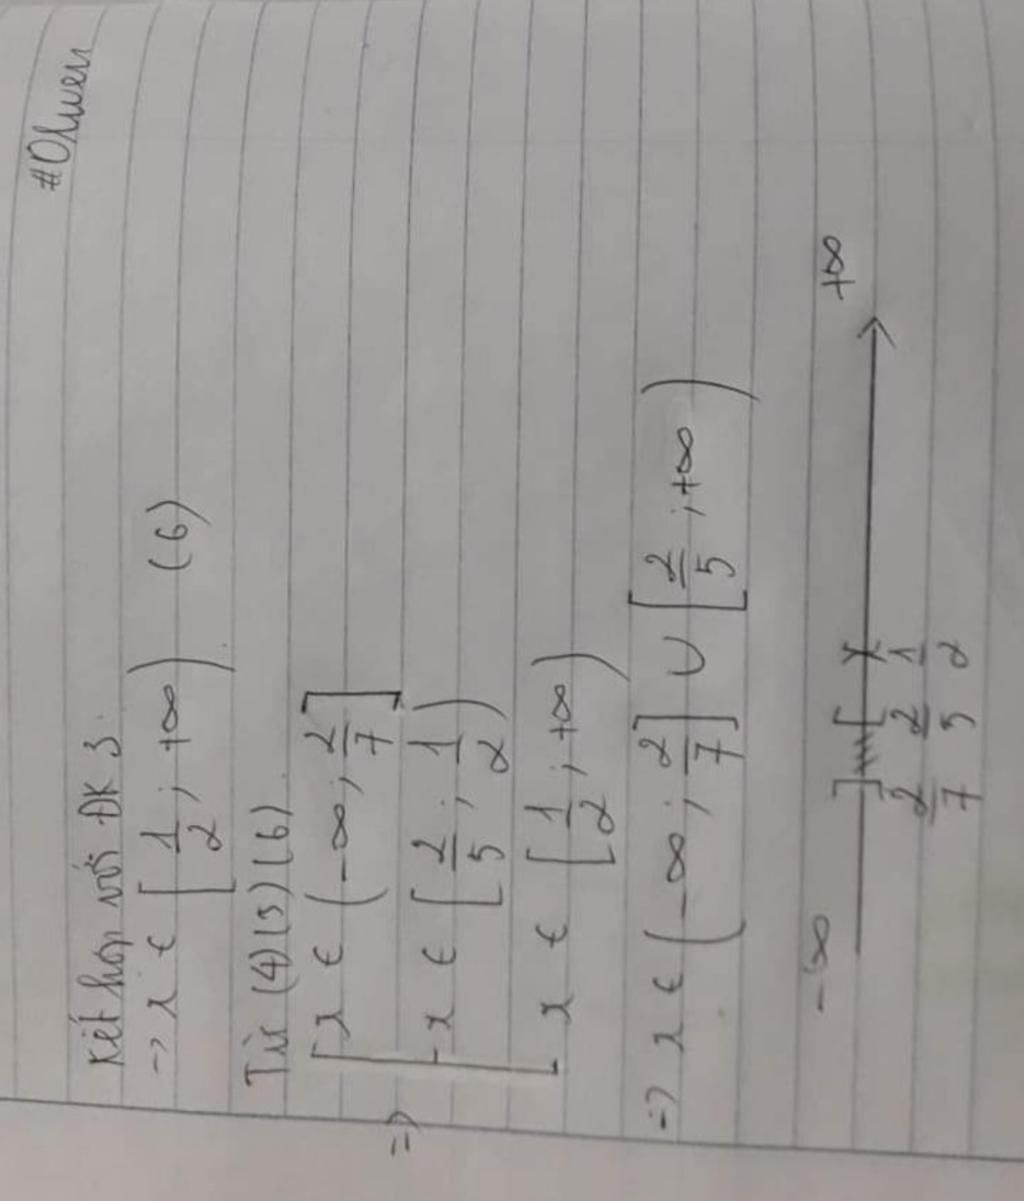 #Olwen
Kết hợp với ĐK 3.
-> x ∈ [1/2; +∞) (6)
Từ (4) (5) (6)
=> [ x ∈ (-∞; 2/7]
x ∈ [2/5; 1/2)
x ∈ [1/2; +∞)
=> x ∈ (-∞; 2/7] ∪ [2/5; +∞)
-∞ +∞
2/7 2/5 1/2